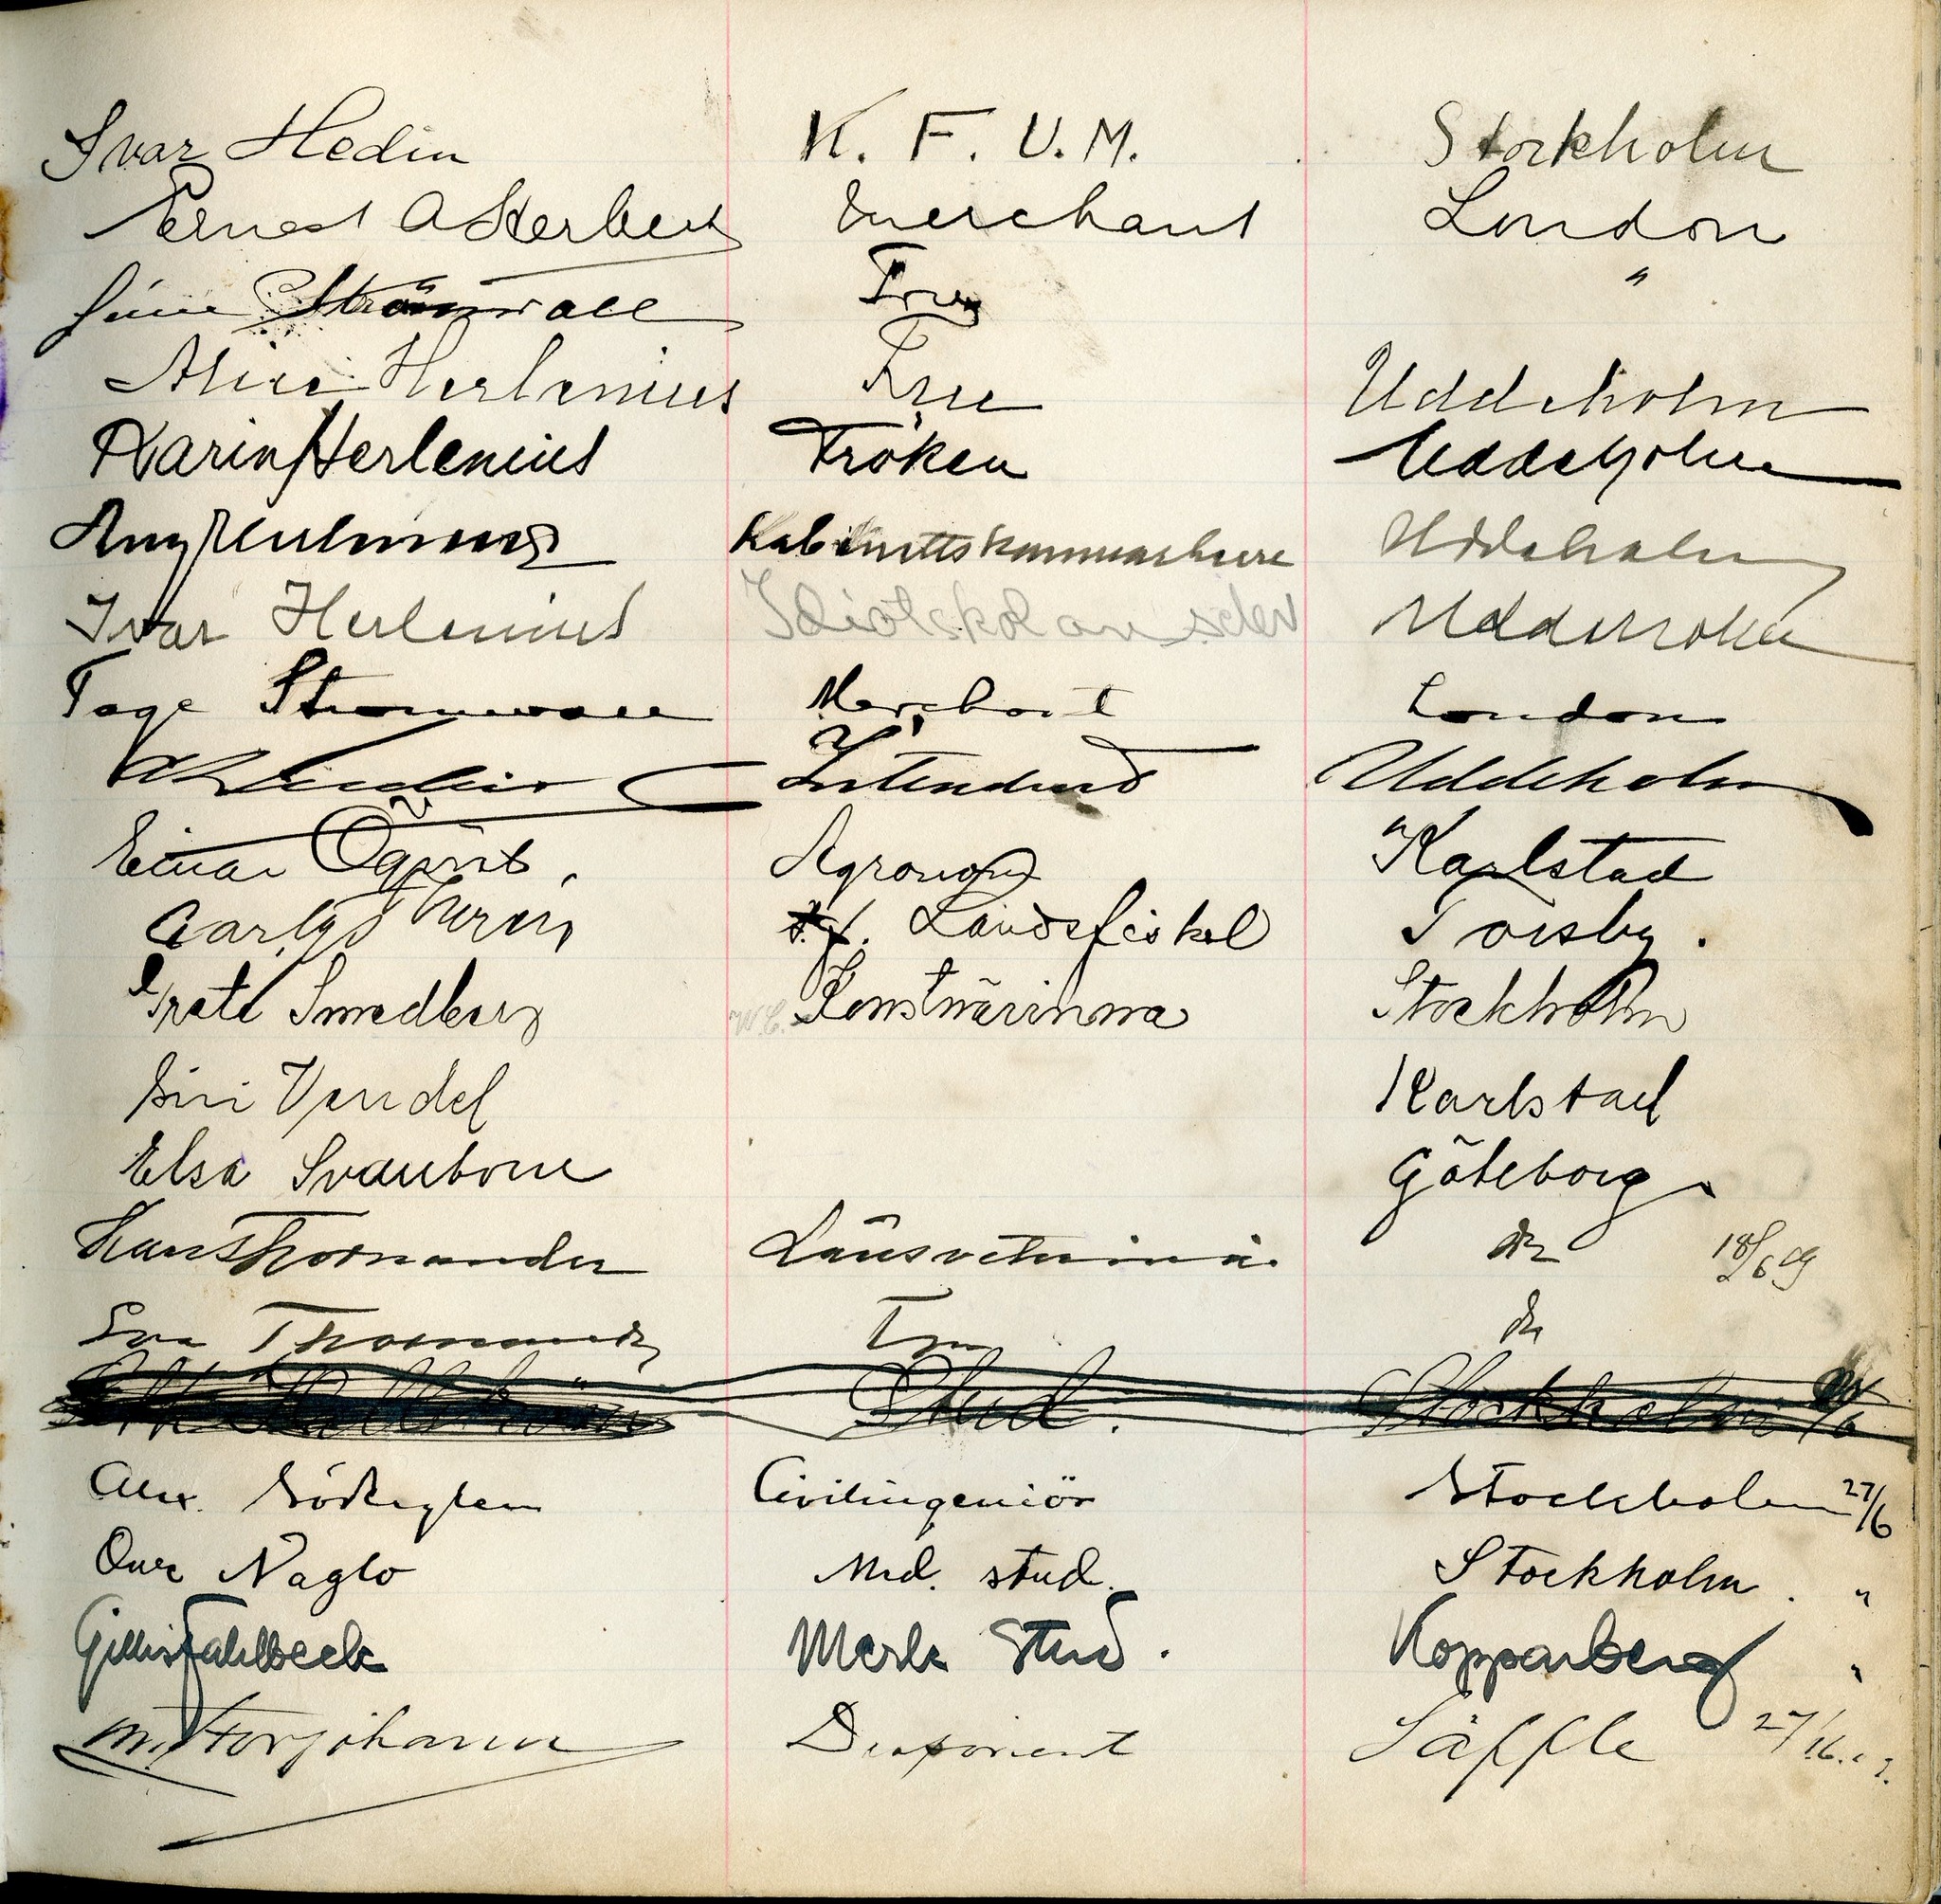 Ivar Hedin K. F. U. M. Stockholm
Ernest Åkerberg merchant London
Strömwall Fru "
Alice Herlenius Fru Uddeholm
Karin Herlenius Fröken Uddeholm
Amy Herlenius Uddeholm
Ivar Herlenius Idiotskolan Uddeholm
Tage Stromwall Merchant London
Intendent Uddeholm
Einar Agronom Karlstad
Landsfiskal Torsby.
Greta Smedberg Konstnärinna Stockholm
Siri Vendel Karlstad
Elsa Svanbom Göteborg
Hans Thornander Länsveterinär do 18/6 09
Eva Thornander Fru do
Stud. Stockholm
Alex. Civilingeniör Stockholm 27/6
Ove Naglo Med. stud. Stockholm. "
Gillis Fahlbeck Merk Stud. Kopparberg "
M. Storjohann Disponent Säffle 27/6.09.